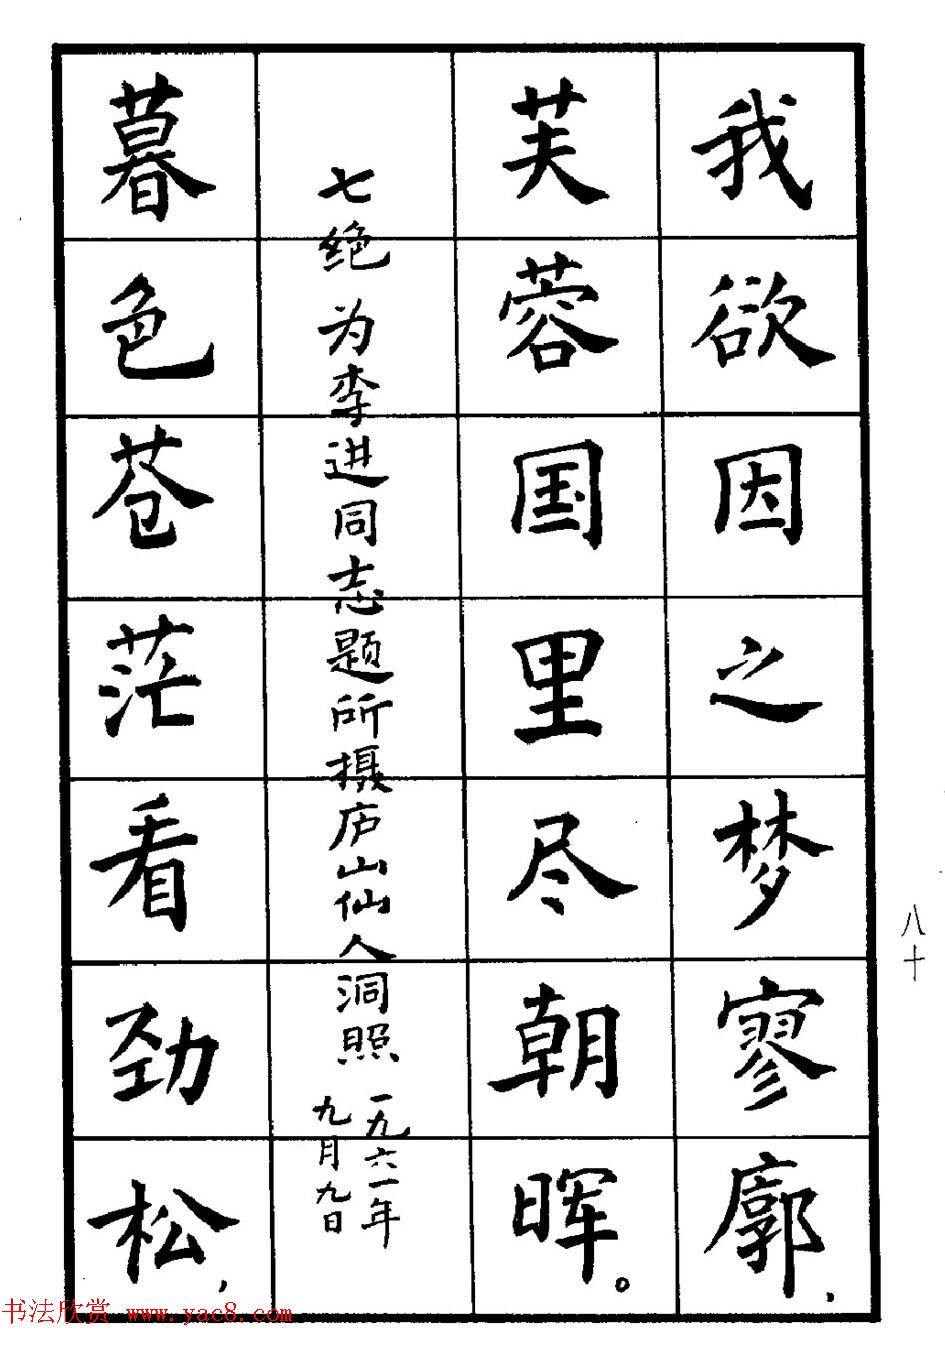 我欲因之梦寥廓，
芙蓉国里尽朝晖。
七绝 为李进同志题所摄庐山仙人洞照
一九六一年
九月九日
暮色苍茫看劲松，
八十
书法欣赏 www.yac8.com